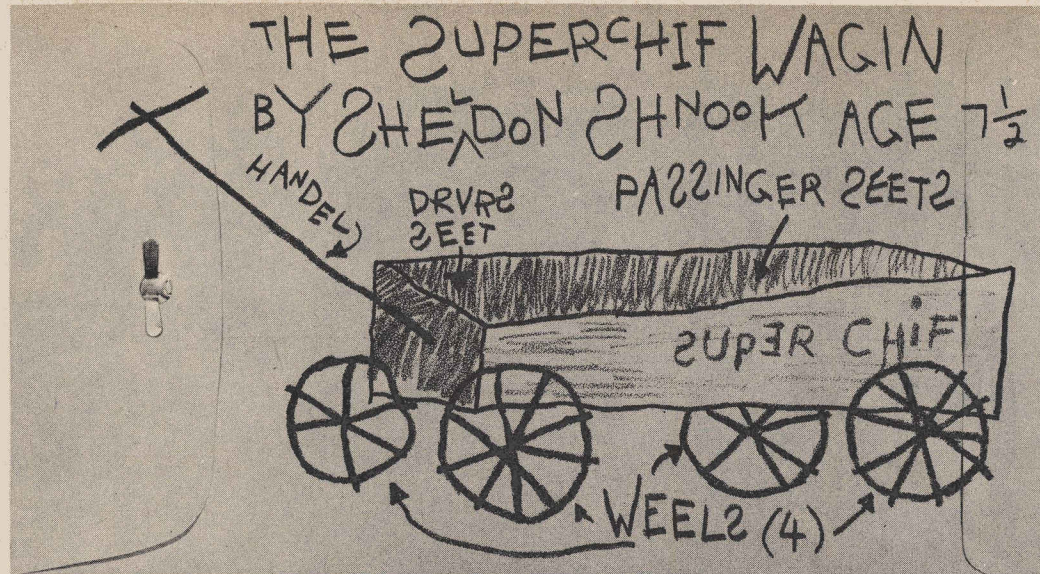 THE SUPERCHIF WAGIN
BY SHELDON SHNOOK AGE 7 1/2
HANDEL
DRVRS
SEET
PASSINGER SEETS
SUPER CHiF
WEELS (4)